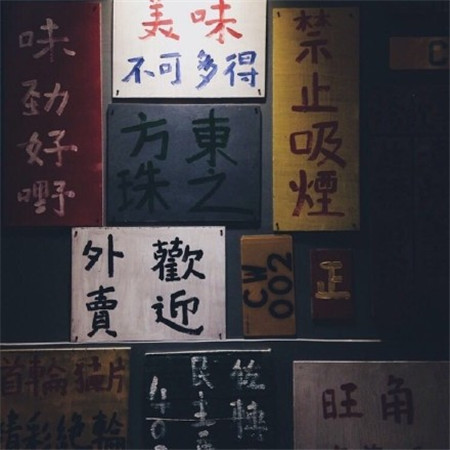 味勁好嘢
美味
不可多得
禁止吸煙
東方
之珠
歡迎
外賣
CW
002
正
首輪猛片
精彩絕輪
佐轉
民主
旺角